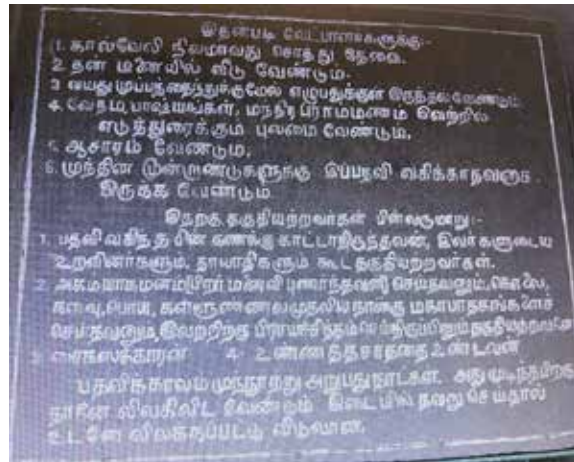 இதன்படி வேட்பாளர்களுக்கு:-
1. கால்வேலி நிலமாவது சொத்து தேவை.
2 தன் மனையில் வீடு வேண்டும்.
3 வயது முப்பத்தைந்துக்குமேல் எழுபதுக்குள் இருத்தல் வேண்டும்.
4. வேதம், பாஷ்யங்கள், மந்திர பிராமணம் இவற்றில்
எடுத்துரைக்கும் புலமை வேண்டும்.
5. ஆசாரம் வேண்டும்.
6. முந்தின மூன்றாண்டுகளுக்கு இப்பதவி வகிக்காதவராக
இருக்க வேண்டும்
இதற்கு தகுதியற்றவர்கள் பின்வருமாறு:-
1. பதவி வகித்த பின் கணக்கு காட்டாதிருந்தவன், இவர்களுடைய
உறவினர்களும், தாயாதிகளும் கூட தகுதியற்றவர்கள்.
2. செய்தவனும், கொலை,
களவு, பொய், கள்ளுண்ணல் முதலிய நான்கு மகாபாதகங்களைச்
செய்தவனும், இவற்றிற்கு பிராயச்சித்தம் செய்திருப்பினும் தகுதியற்றவனே
3. 4. உண்ணத்தகாததை உண்டவன்
பதவிக்காலம் முந்நூற்று அறுபது நாட்கள். அது முடிந்தபிறகு
தானே விலகிவிட வேண்டும் இடையில் தவறு செய்தால்
உடனே விலக்கப்பட்டு விடுவான்.